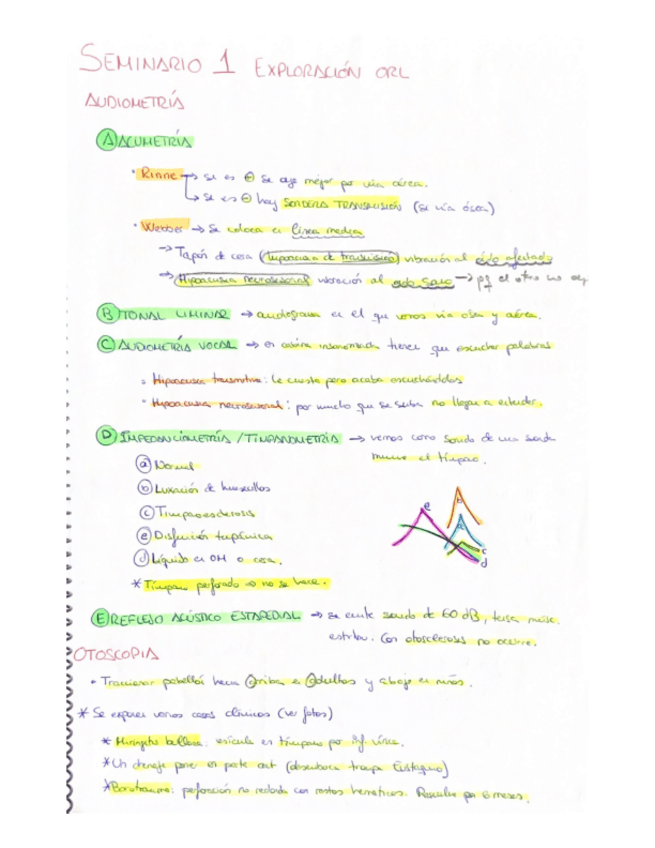 SEMINARIO 1 EXPLORACIÓN ORL
AUDIOMETRÍA
A ACUMETRÍA
· Rinne → si es ⊕ se oye mejor por vía aérea.
↳ Si es ⊖ hay SORDERA TRANSMISIÓN (si vía ósea)
· Webber → Se coloca en línea media
→ Tapón de cera (hipoacusia de transmisión) vibración al oído afectado
→ Hipoacusia neurosensorial vibración al oído sano → pq el otro no oye
B TONAL LIMINAR → audiograma en el que vemos vía ósea y aérea.
C AUDIOMETRÍA VOCAL → en cabina insonorizada tienen que escuchar palabras
· Hipoacusia transmisiva: le cuesta pero acaba escuchándolas
· Hipoacusia neurosensorial: por mucho que se suba no llegan a entender.
D IMPEDANCIOMETRÍA / TIMPANOMETRÍA → vemos como sonido de una sonda
mueve el tímpano.
a Normal
b Luxación de huesecillos
c Timpanoesclerosis
e Disfunción tubárica
d Líquido en OM o cera.
* Tímpano perforado → no se hace.
e b a c d
E REFLEJO ACÚSTICO ESTAPEDIAL → se emite sonido de 60 dB, tensa músc.
estribo. Con otosclerosis no ocurre.
OTOSCOPIA
· Traccionar pabellón hacia Arriba en Adultos y abajo en niños.
* Se exponen varios casos clínicos (ver fotos)
* Miringitis bullosa: vesícula en tímpano por inf. vírica.
* Un drenaje poner en parte ant (desemboca trompa Eustaquio)
* Barotrauma: perforación no redonda con restos hemáticos. Resuelve por 6 meses.